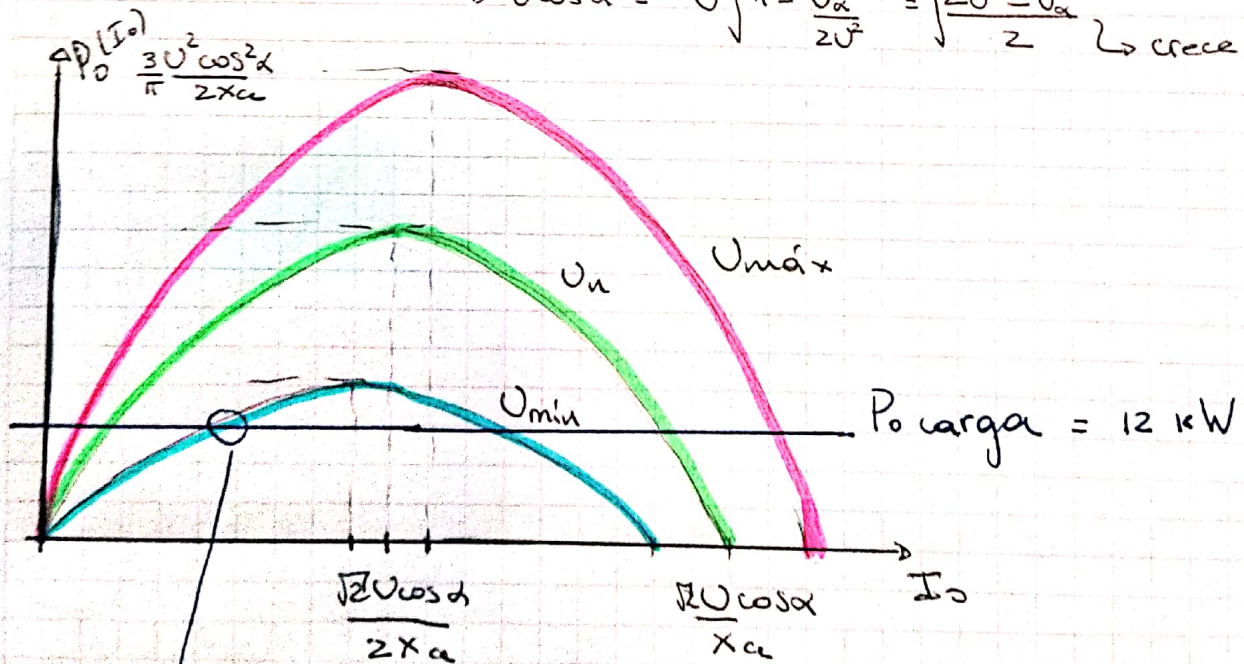 U cos α = U √(1 - Uα/2U²) = √((2U² - Uα)/2) ↳ crece
P₀(I₀)
3/π U² cos²α / 2Xa
Umáx
Un
Umín
P₀ carga = 12 kW
√2 U cos α / 2Xa
√2 U cos α / Xa
I₀